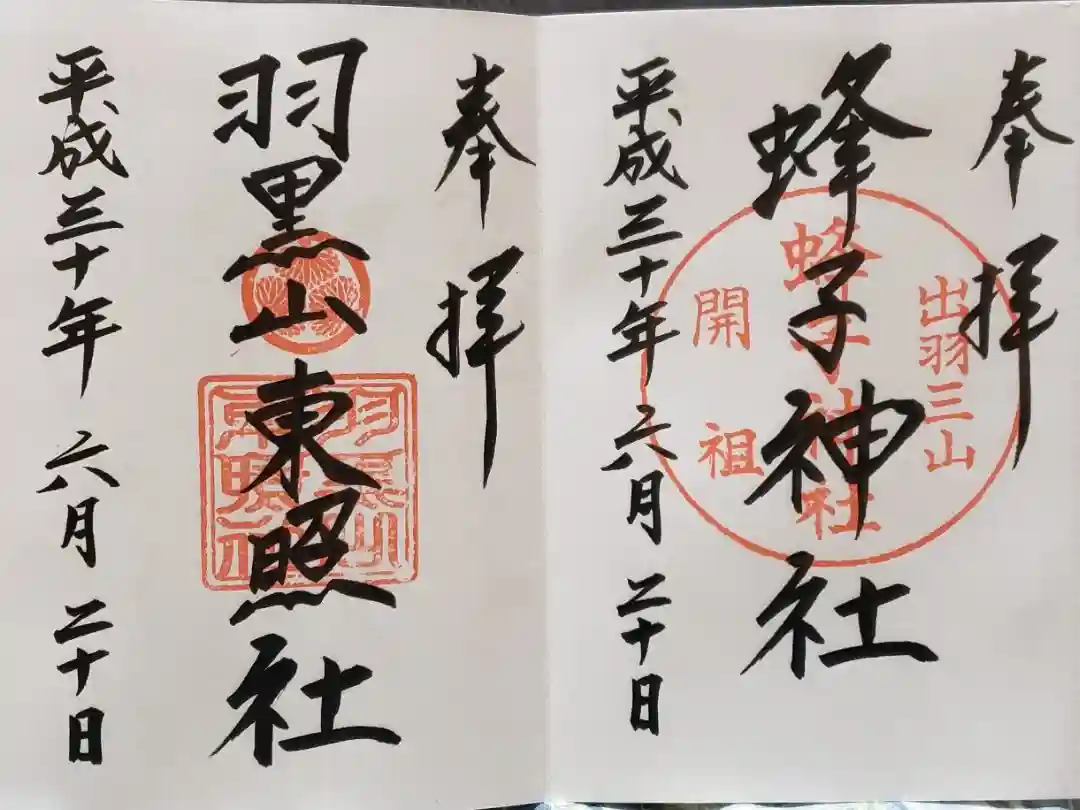 奉拝
蜂子神社
平成三十年 六月 二十日
出羽三山
蜂子神社
開祖
奉拝
羽黒山東照社
平成三十年 六月 二十日